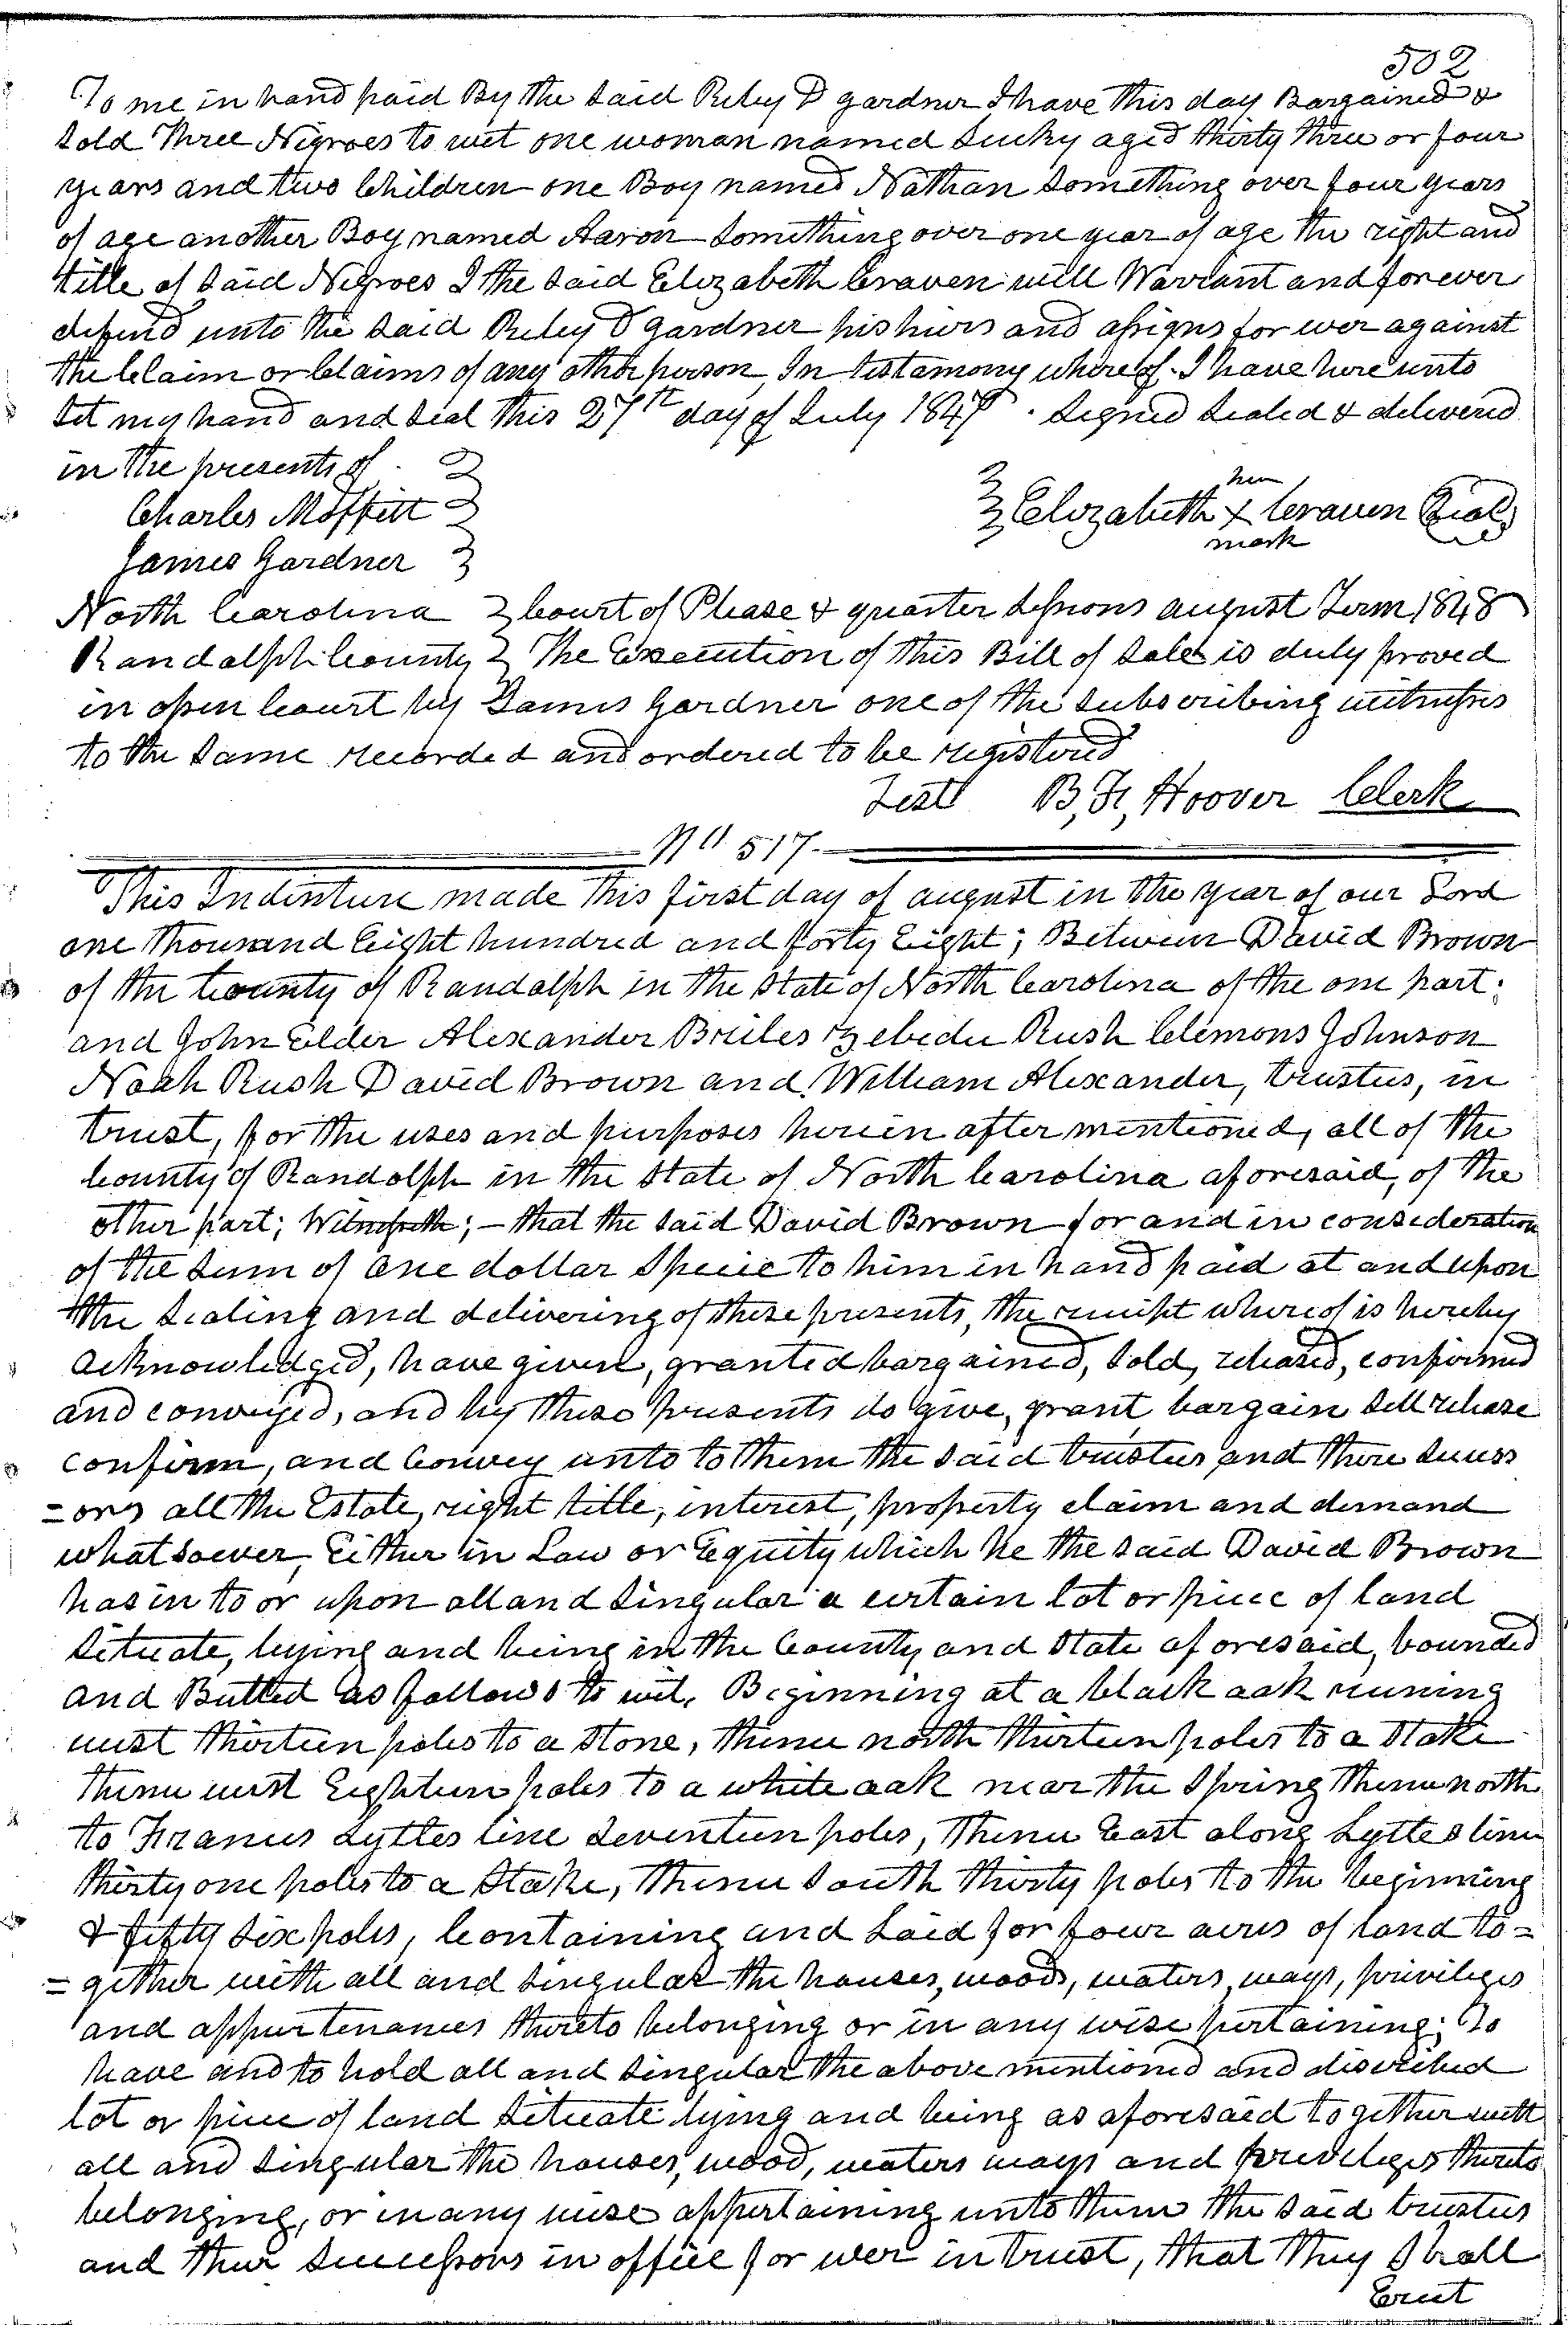 502
To me in hand paid By the said Riley D gardner I have this day Bargained &
sold Three Negroes to wit one woman named Lucky aged thirty three or four
years and two Children one Boy named Nathan something over four years
of age another Boy named Aaron something over one year of age the right and
title of said Negroes I the said Elizabeth Craven will Warrant and forever
defend unto the said Riley D gardner his heirs and assigns for ever against
the Claim or Claims of any other person, In testamony where of I have here unto
set my hand and seal this 27th day of July 1847 . Signed Sealed & delivered
in the presents of
her
Charles Moffitt Elizabeth X Craven Seal
mark
James Gardner
North Carolina Court of Please & quarter Sessions august Term 1848
Randolph County The Execution of this Bill of Sale is duly proved
in open Court by James Gardner one of the subscribing witnesses
to the same recorded and ordered to be registered
Test B, F, Hoover Clerk
No 517.
This Indenture made this first day of august in the year of our Lord
one thousand Eight hundred and forty Eight; Between David Brown
of the County of Randolph in the State of North Carolina of the one part;
and John Elder Alexander Briles Zebedee Rush Clemons Johnson
Noah Rush David Brown and William Alexander, trustees, in
trust, for the uses and purposes herein after mentioned, all of the
County of Randolph in the State of North Carolina aforesaid, of the
other part; Witnesseth; – that the said David Brown for and in consideration
of the sum of one dollar specie to him in hand paid at and upon
the sealing and delivering of these presents, the receipt whereof is hereby
acknowledged, have given, granted bargained, sold, released, confirmed
and conveyed, and by these presents do give, grant bargain sell release
confirm, and Convey unto to them the said trustees and there success
=ors all the Estate, right title, interest, property claim and demand
whatsoever, Either in Law or Equity which he the said David Brown
has in to or upon all and singular a certain lot or piece of land
situate, lying and being in the County and State aforesaid, bounded
and Butted as follows to wit, Beginning at a black oak running
west thirteen poles to a stone, thence north thirteen poles to a stake
thence west Eighteen poles to a white oak near the Spring thence north
to Francis Lyttes line seventeen poles, thence East along Lyttes line
thirty one poles to a stake, thence south thirty poles to the beginning
& fifty six poles, Containing and Laid for four acres of land to=
=gether with all and singular the houses, woods, waters, ways, privileges
and appurtenances thereto belonging or in any wise pertaining; To
have and to hold all and singular the above mentioned and discribed
lot or piece of land situate lying and being as aforesaid together with
all and singular the houses, wood, waters ways and priveleges thereto
belonging, or in any wise appertaining unto them the said trustees
and their successors in office for ever in trust, that they shall
Erect